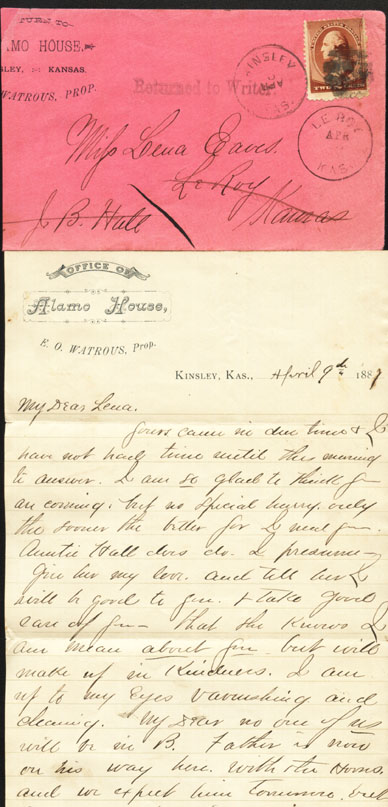 TURN TO
AMO HOUSE.
SLEY, KANSAS.
WATROUS, PROP.
KINSLEY
APR
KAS.
Returned to Writer.
TWO CENTS
LE ROY
APR
KAS.
Miss Lena Eaves.
LeRoy
Kansas
J. B. Hall
OFFICE OF
Alamo House,
E. O. WATROUS, Prop.
KINSLEY, KAS., April 9th 1887
My Dear Lena.
Yours came in due time & I
have not had time until this morning
to answer. I am so glad to think you
are coming. but no special hurry. only
the sooner the better for I need you.
Auntie Hall does do. I presume
Give her my love. and tell her I
will be good to you. & take good
care of you that she knows I
am mean about you but will
make up in Kindness. I am
up to my Eyes varnishing and
cleaning. My Dear no one of us
will be in B. Father is now
on his way here. with the Horses
and we expect him tomorrow.